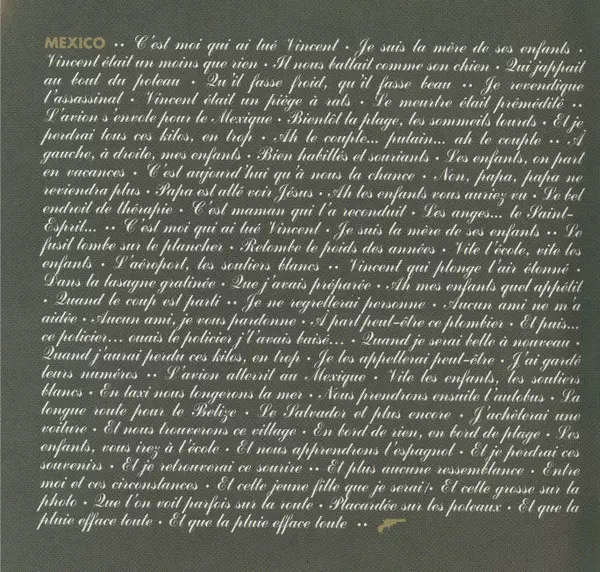 MEXICO •• C'est moi qui ai tué Vincent • Je suis la mère de ses enfants •
Vincent était un moins que rien • Il nous battait comme son chien • Qui jappait
au bout du poteau • Qu'il fasse froid, qu'il fasse beau •• Je revendique
l'assassinat • Vincent était un piège à rats • Le meurtre était prémédité ••
L'avion s'envole pour le Mexique • Bientôt la plage, les sommeils lourds • Et je
perdrai tous ces kilos, en trop • Ah le couple... putain... ah le couple •• À
gauche, à droite, mes enfants • Bien habillés et souriants • Les enfants, on part
en vacances • C'est aujourd'hui qu'à nous la chance • Non, papa, papa ne
reviendra plus • Papa est allé voir Jésus • Ah les enfants vous auriez vu • Le bel
endroit de thérapie • C'est maman qui l'a reconduit • Les anges... le Saint-
Esprit... •• C'est moi qui ai tué Vincent • Je suis la mère de ses enfants •• Le
fusil tombe sur le plancher • Retombe le poids des années • Vite l'école, vite les
enfants • L'aéroport, les souliers blancs •• Vincent qui plonge l'air étonné •
Dans la lasagne gratinée • Que j'avais préparée • Ah mes enfants quel appétit
• Quand le coup est parti •• Je ne regretterai personne • Aucun ami ne m'a
aidée • Aucun ami, je vous pardonne • À part peut-être ce plombier • Et puis...
ce policier... ouais le policier j'l'avais baisé... • Quand je serai belle à nouveau •
Quand j'aurai perdu ces kilos, en trop • Je les appellerai peut-être • J'ai gardé
leurs numéros •• L'avion atterrit au Mexique • Vite les enfants, les souliers
blancs • En taxi nous longerons la mer • Nous prendrons ensuite l'autobus • La
longue route pour le Belize • Le Salvador et plus encore • J'achèterai une
voiture • Et nous trouverons ce village • En bord de rien, en bord de plage • Les
enfants, vous irez à l'école • Et nous apprendrons l'espagnol • Et je perdrai ces
souvenirs • Et je retrouverai ce sourire •• Et plus aucune ressemblance • Entre
moi et ces circonstances • Et cette jeune fille que je serai/• Et cette grosse sur la
photo • Que l'on voit parfois sur la route • Placardée sur les poteaux • Et que la
pluie efface toute • Et que la pluie efface toute ••